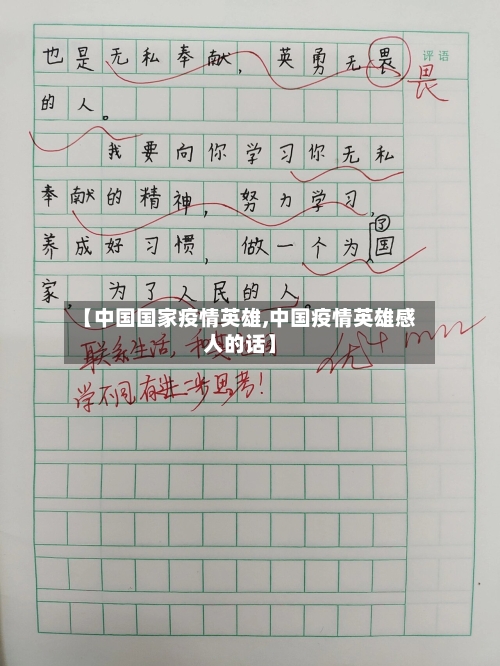 也是无私奉献，英勇无畏
评语
畏
的人。
我要向你学习你无私
奉献的精神，努力学习，
养成好习惯，做一个为国
了
家，为了人民的人。
【中国国家疫情英雄,中国疫情英雄感
人的话】
联系生活，和
优+
学不同有进一步思考！